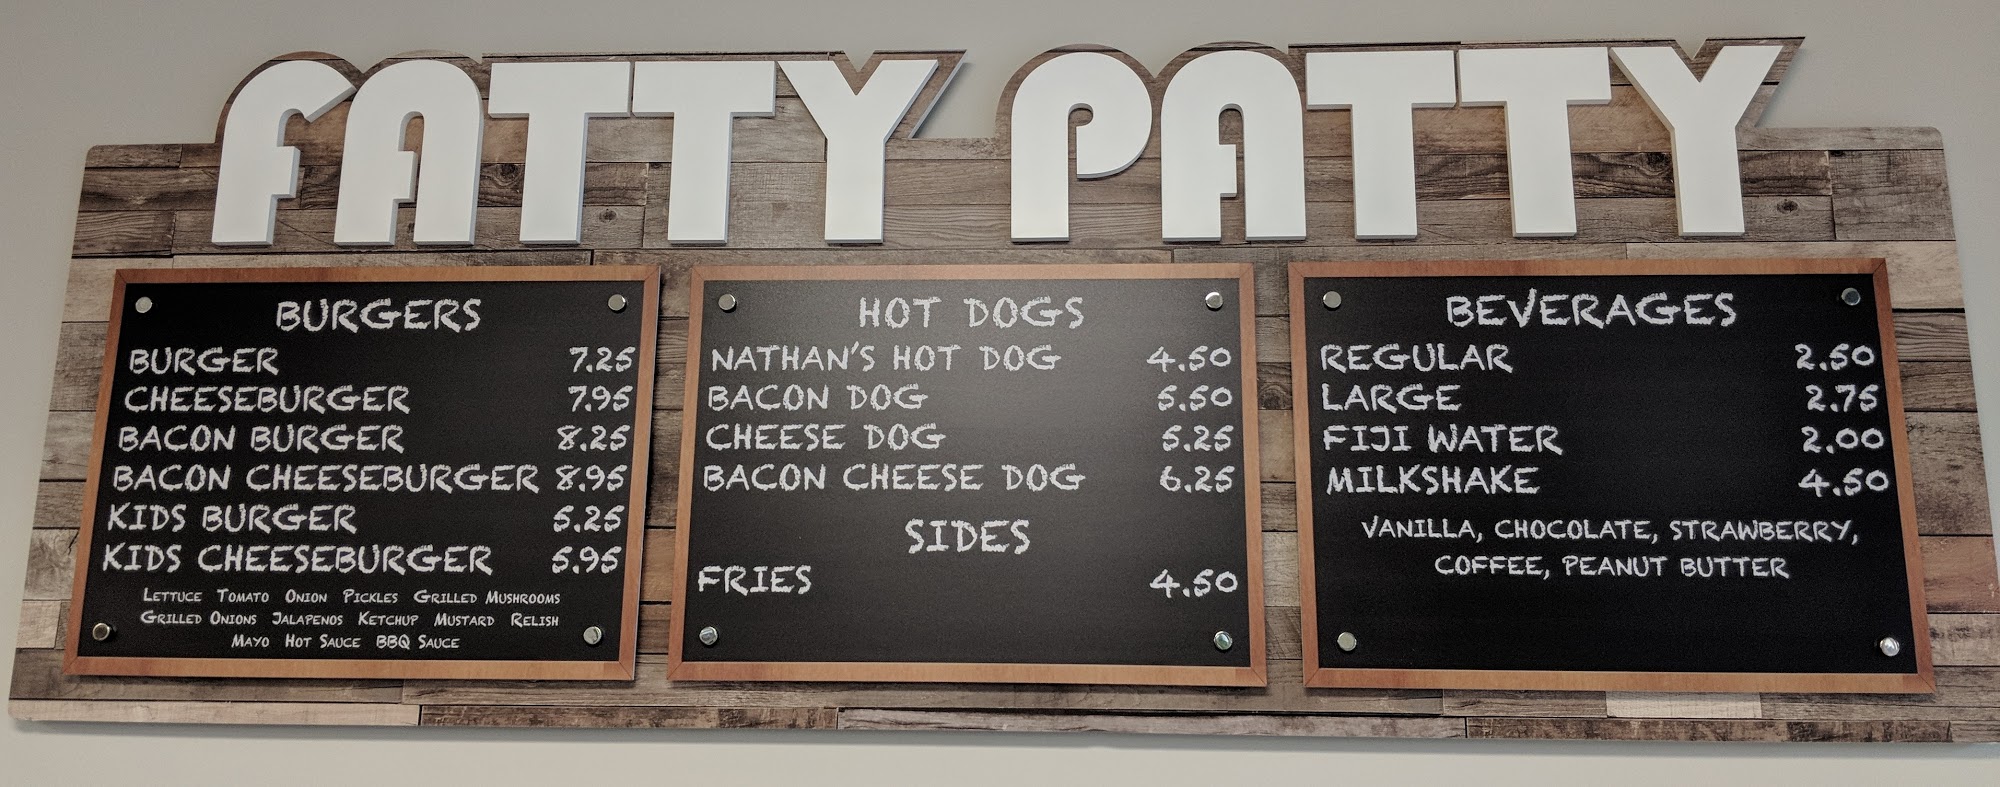 FATTY PATTY
BURGERS
BURGER 7.25
CHEESEBURGER 7.95
BACON BURGER 8.25
BACON CHEESEBURGER 8.95
KIDS BURGER 5.25
KIDS CHEESEBURGER 5.95
LETTUCE TOMATO ONION PICKLES GRILLED MUSHROOMS
GRILLED ONIONS JALAPENOS KETCHUP MUSTARD RELISH
MAYO HOT SAUCE BBQ SAUCE
HOT DOGS
NATHAN'S HOT DOG 4.50
BACON DOG 5.50
CHEESE DOG 5.25
BACON CHEESE DOG 6.25
SIDES
FRIES 4.50
BEVERAGES
REGULAR 2.50
LARGE 2.75
FIJI WATER 2.00
MILKSHAKE 4.50
VANILLA, CHOCOLATE, STRAWBERRY,
COFFEE, PEANUT BUTTER